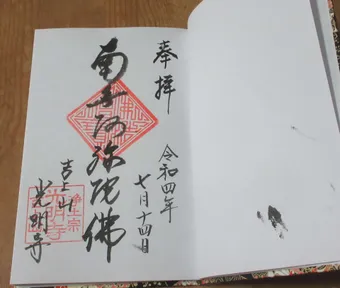 奉拝
令和四年
七月十四日
南无阿弥陀佛
吉上山
光明寺
浄土宗
光明寺